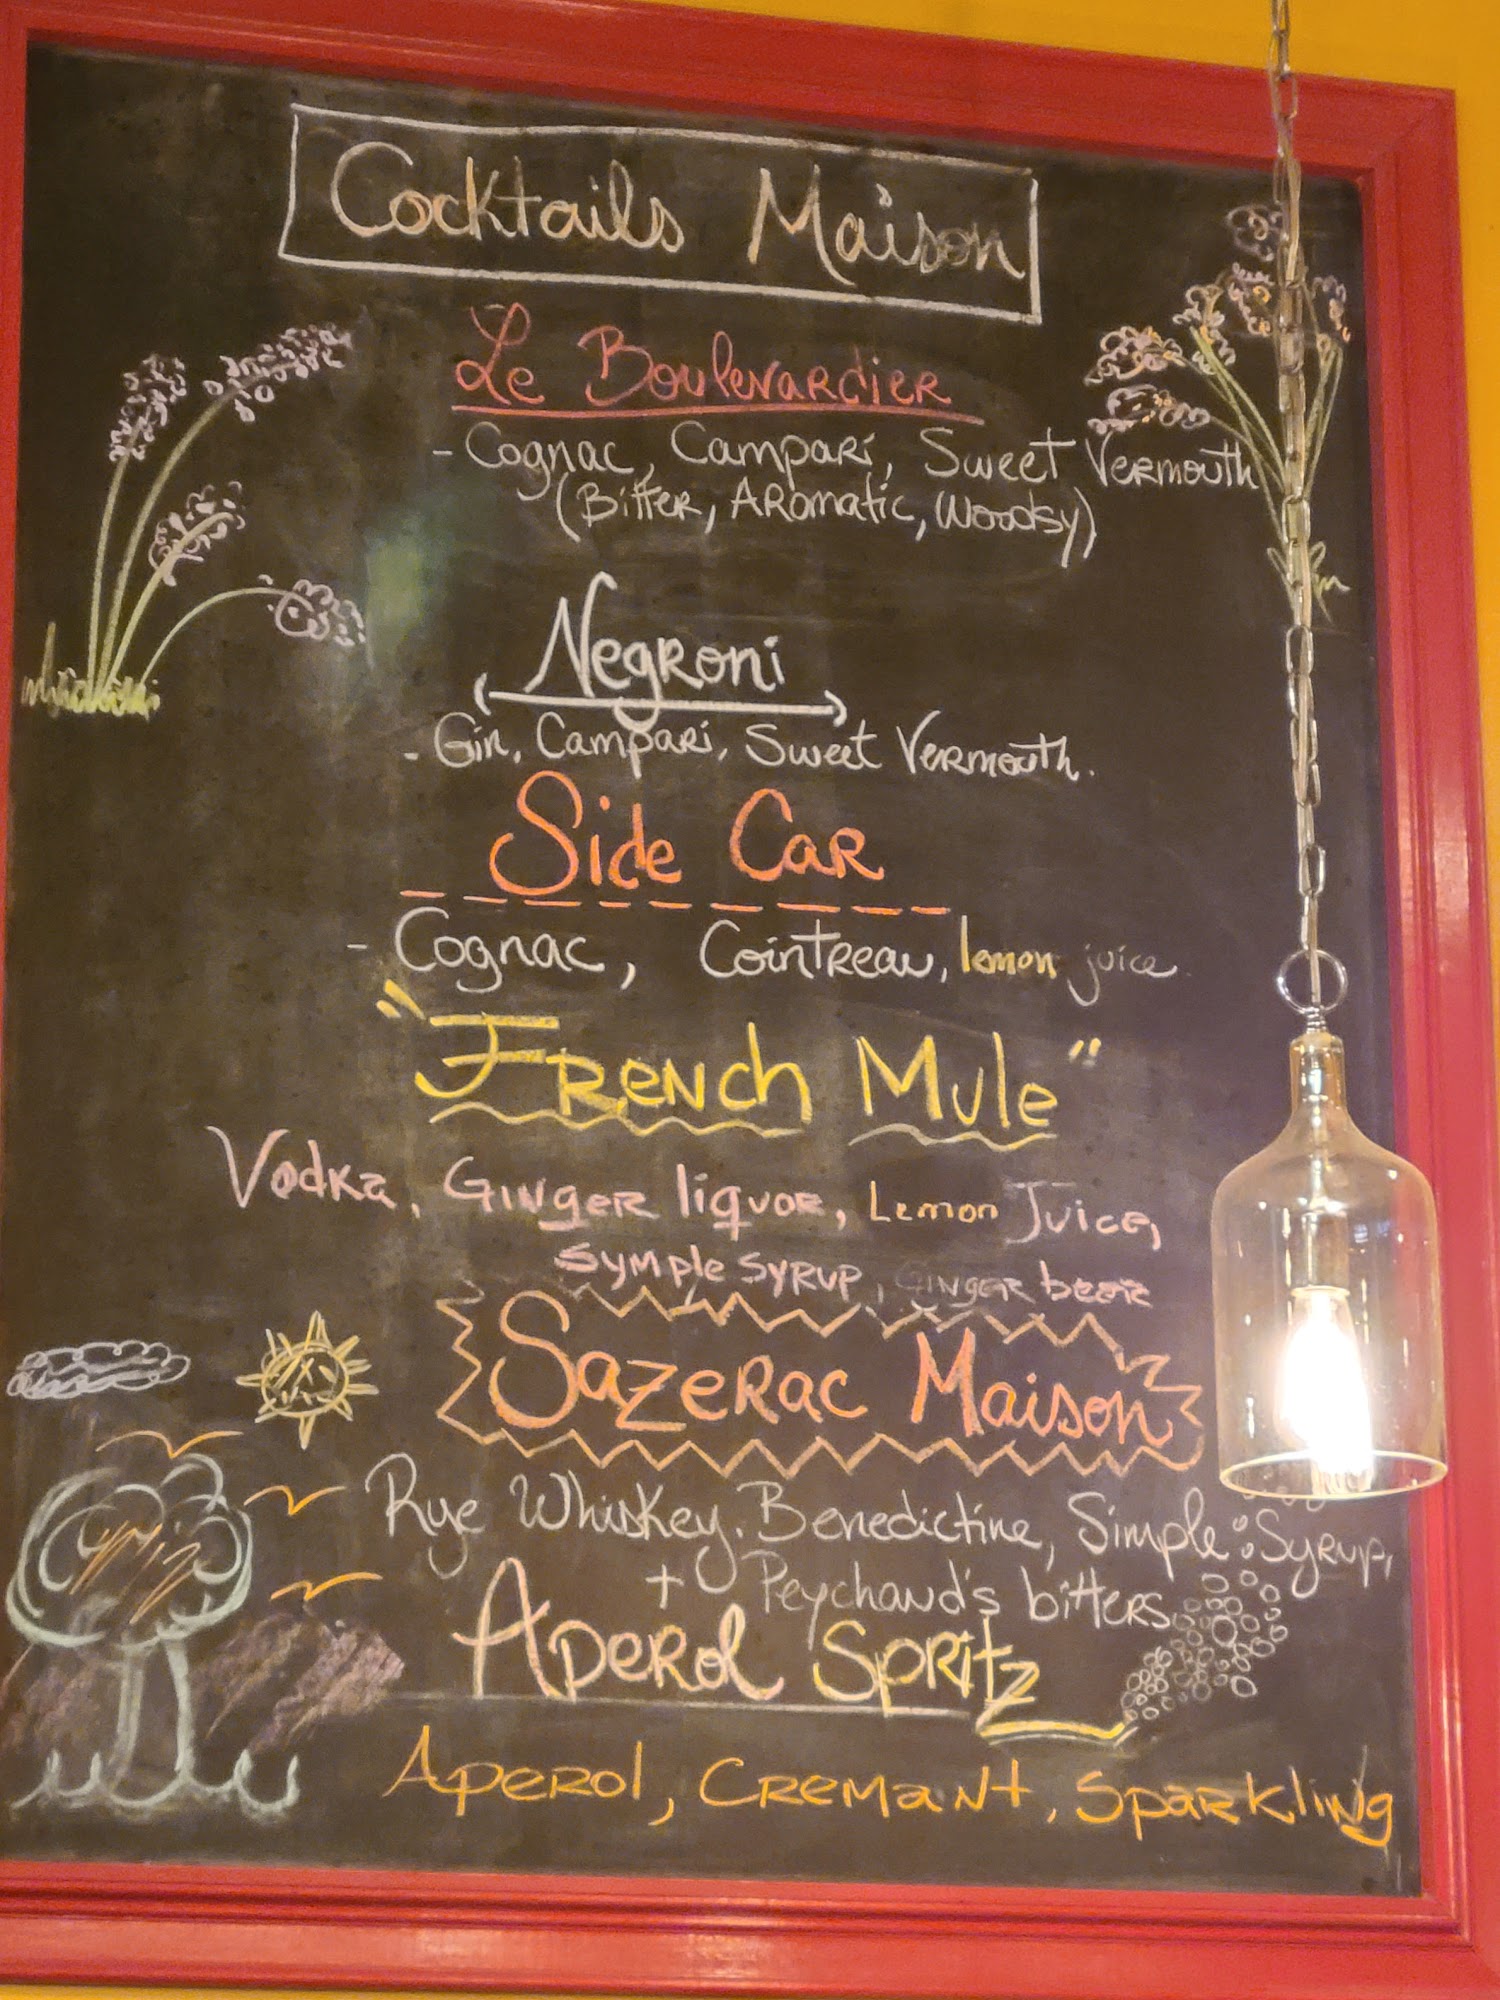 Cocktails Maison
Le Boulevardier
- Cognac, Campari, Sweet Vermouth
(Bitter, Aromatic, Woodsy)
Negroni
- Gin, Campari, Sweet Vermouth.
Side Car
- Cognac, Cointreau, lemon juice
"French Mule"
Vodka, Ginger liquor, Lemon Juice,
Symple Syrup, Ginger beer
Sazerac Maison
Rye Whiskey, Benedictine, Simple Syrup,
+ Peychaud's bitters
Aperol Spritz
Aperol, Cremant, Sparkling